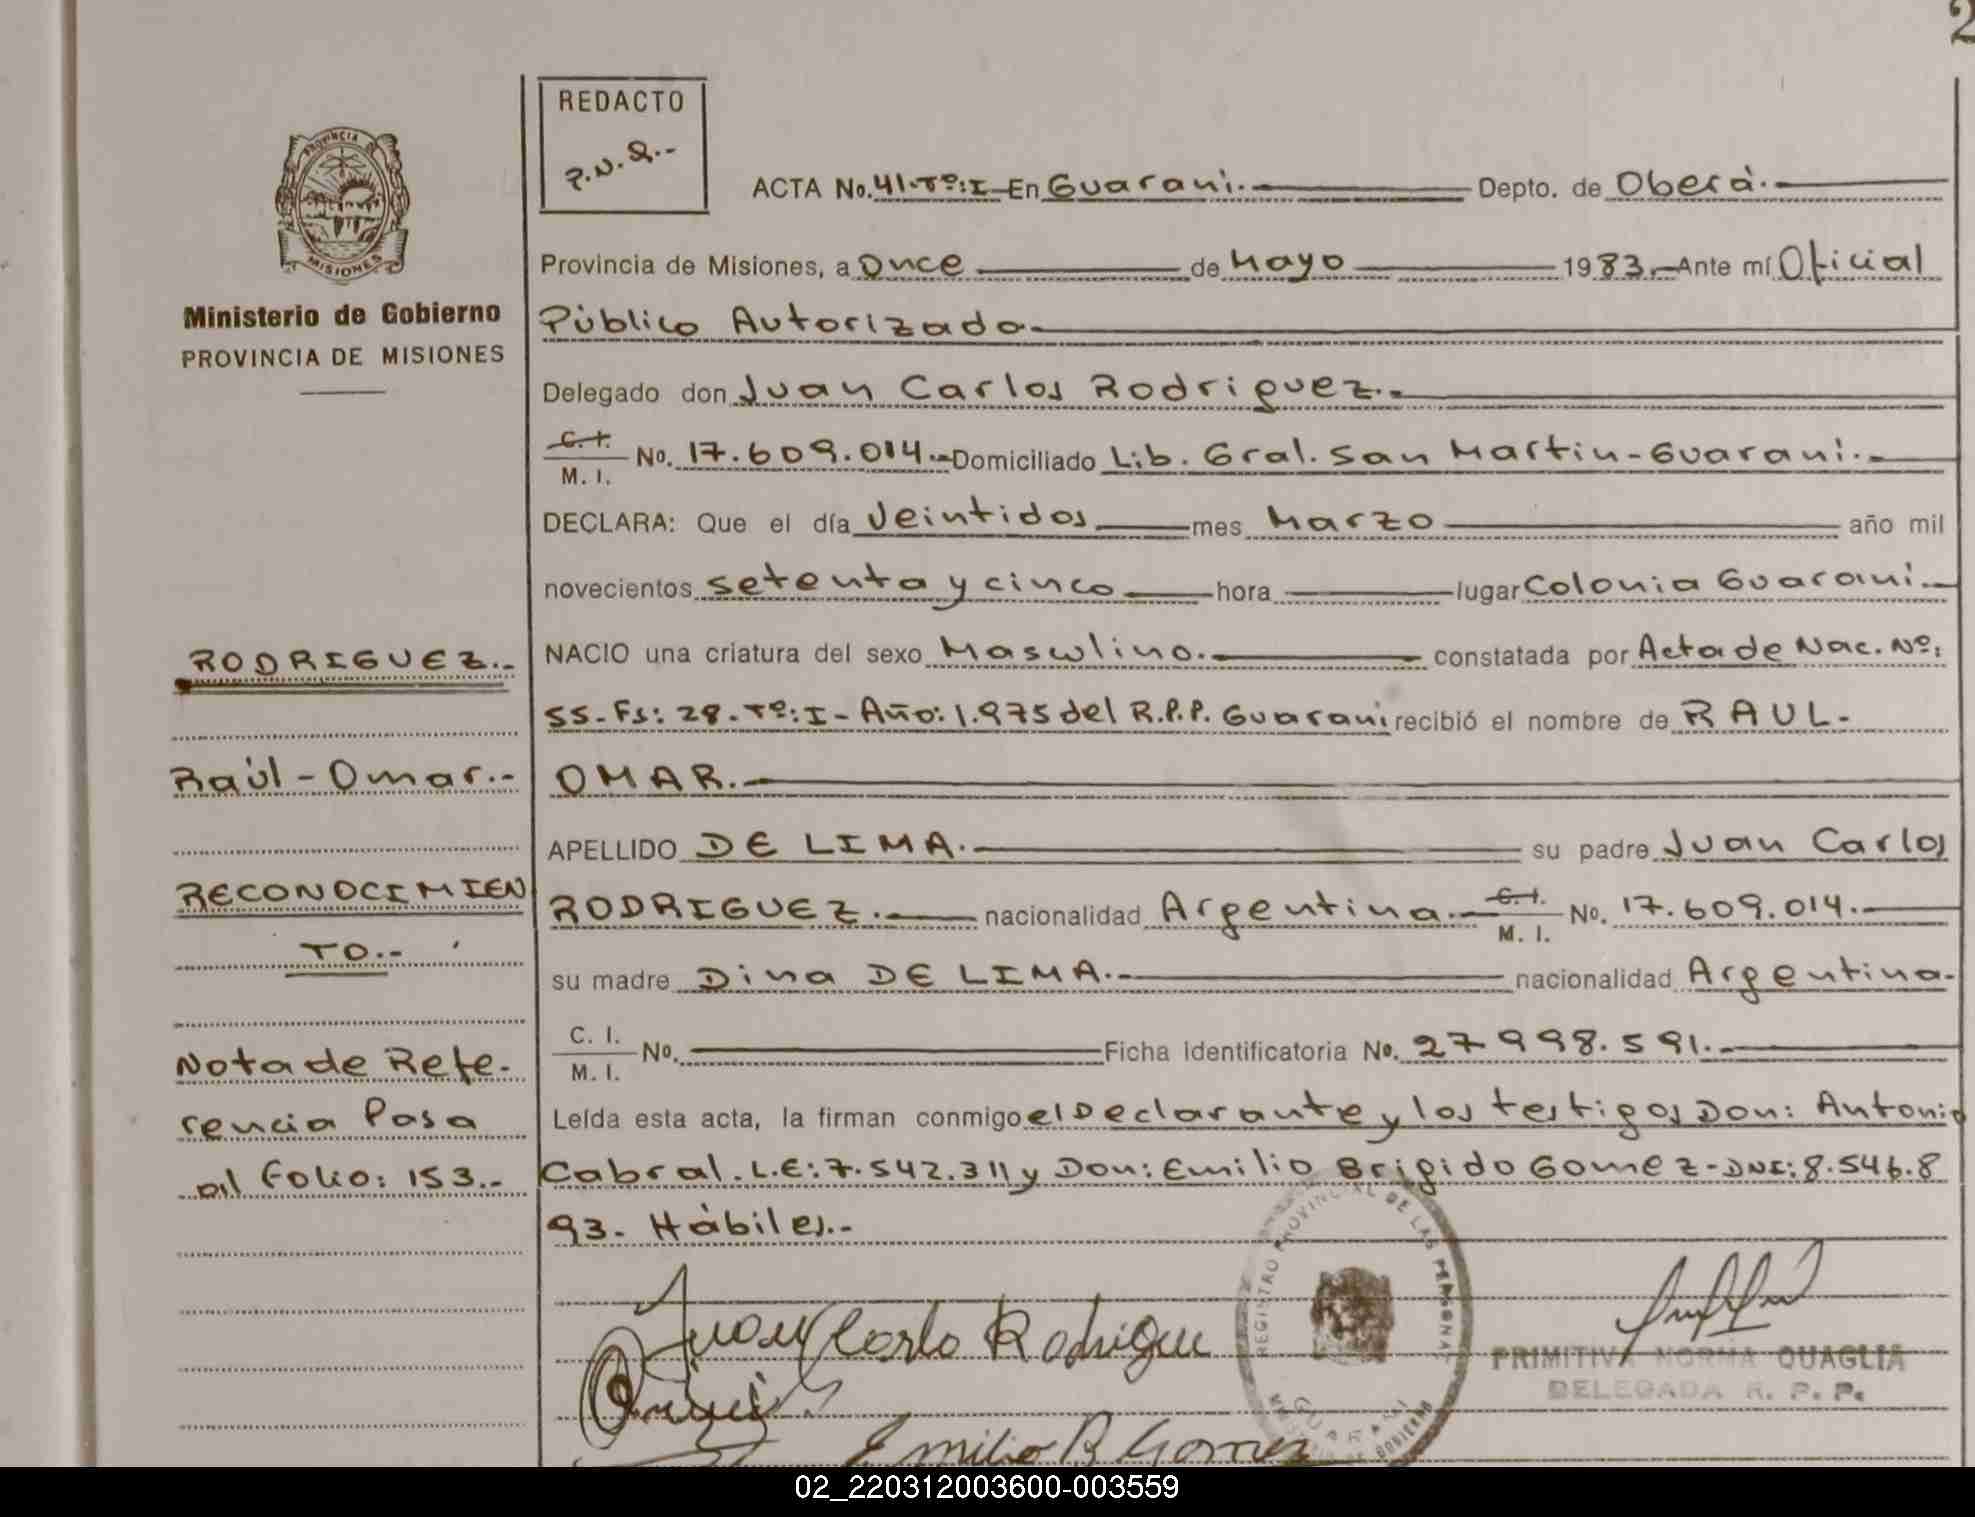 2
REDACTO
P.N.Q.-
PROVINCIA DE
MISIONES
Ministerio de Gobierno
PROVINCIA DE MISIONES
ACTA No. 41.Tº:I En Guaraní. Depto. de Oberá.
Provincia de Misiones, a Once de Mayo 1983.- Ante mí Oficial
Público Autorizado.
Delegado don Juan Carlos Rodriguez.-
C. I.
M. I. No. 17.609.014.- Domiciliado Lib. Gral. San Martin-Guaraní.-
DECLARA: Que el día Veintidos mes Marzo año mil
novecientos setenta y cinco hora lugar Colonia Guaraní.
NACIO una criatura del sexo Masculino. constatada por Acta de Nac. Nº:
55-Fs: 28-Tº:I-Año: 1.975 del R.P.P. Guaraní recibió el nombre de RAUL-
OMAR.
APELLIDO DE LIMA. su padre Juan Carlos
RODRIGUEZ. nacionalidad Argentina. C. I.
M. I. No. 17.609.014.
su madre Dina DE LIMA. nacionalidad Argentina.
C. I.
M. I. No. Ficha identificatoria No. 27.998.591.
Leída esta acta, la firman conmigo el Declarante y los testigos Don: Antonio
Cabral. L.E: 7.542.311 y Don: Emilio Brigido Gomez-DNI: 8.546.8
93. Hábiles.-
RODRIGUEZ.-
Raúl-Omar.-
RECONOCIMIEN
TO.-
Nota de Refe-
rencia Pasa
al Folio: 153.-
Juan Carlo Rodrigue
Emilio B Gomez
REGISTRO PROVINCIAL DE LAS PERSONAS
GUARANI
MINISTERIO DE GOBIERNO
PRIMITIVA NORMA QUAGLIA
DELEGADA R. P. P.
02_220312003600-003559